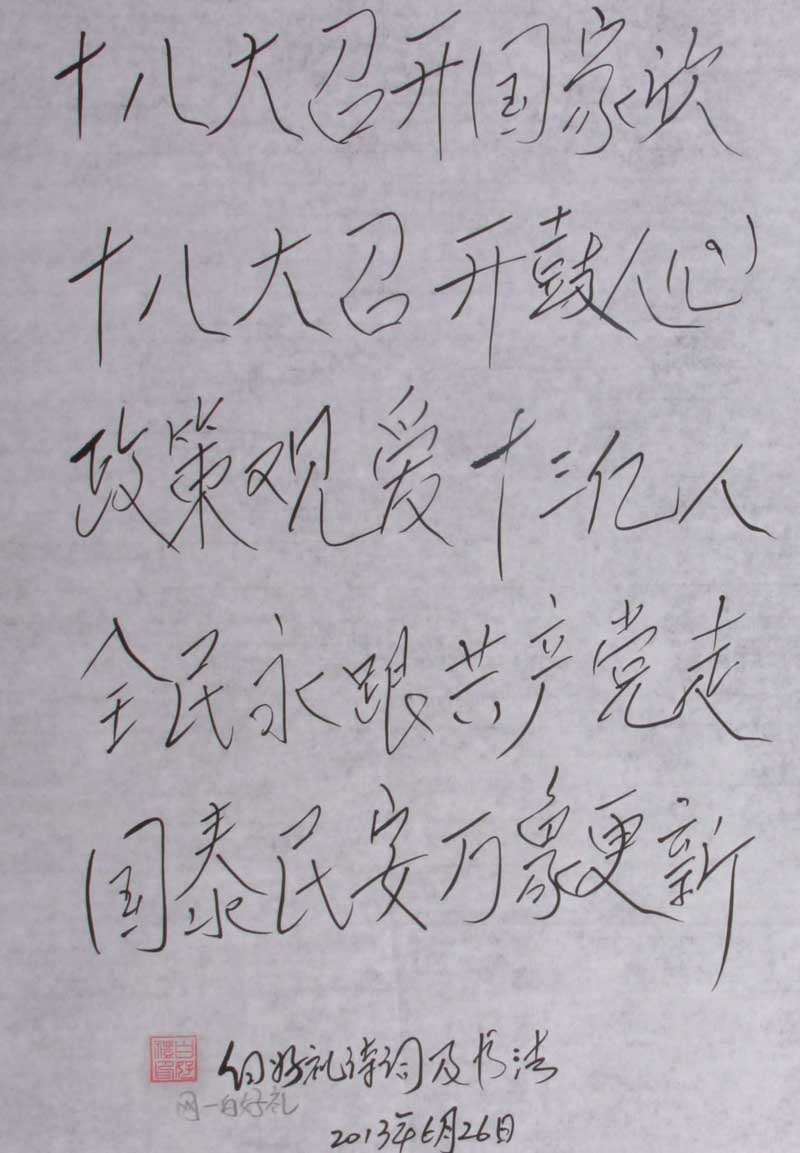 十八大召开国家欣
十八大召开鼓人心
政策观爱十三亿人
全民永跟共产党走
国泰民安万象更新
白好礼诗词及书法
网一白好礼
2013年6月26日